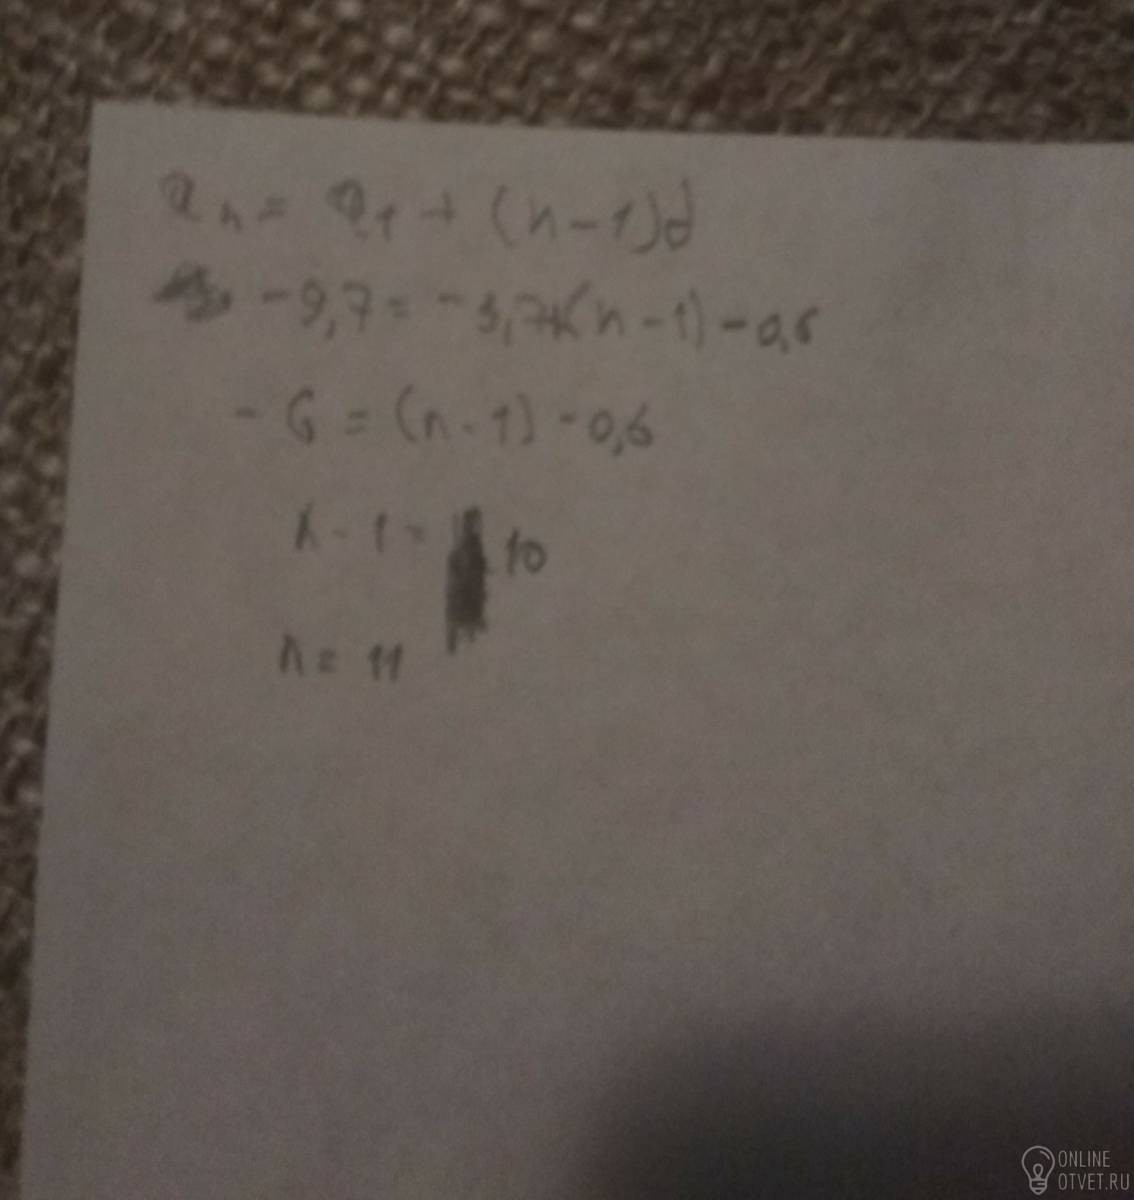 an = a1 + (n-1)d
-9,7 = -3,7+(n-1)-0,6
-6 = (n-1)-0,6
n-1= 10
n= 11
ONLINE
OTVET.RU